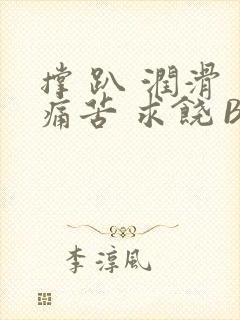 撑 趴 潤滑
痛苦 求饒 B
李淳風